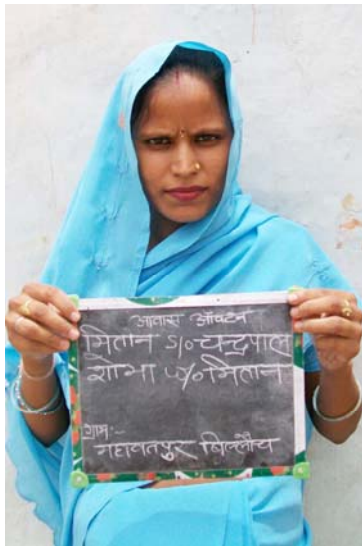 आवास ऑवटन
मितान S/o चन्द्रपाल
शोभा w/o मितान
ग्राम:-
महावतपुर बिल्लौच